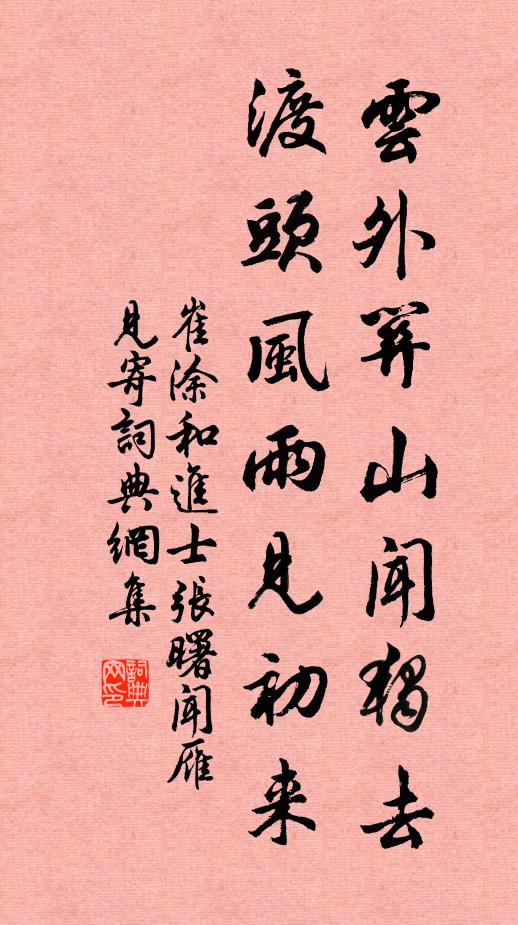 雲外関山聞獨去
渡頭風雨見初来
崔涂和進士張曙聞雁
見寄詞典網集
詞典网印